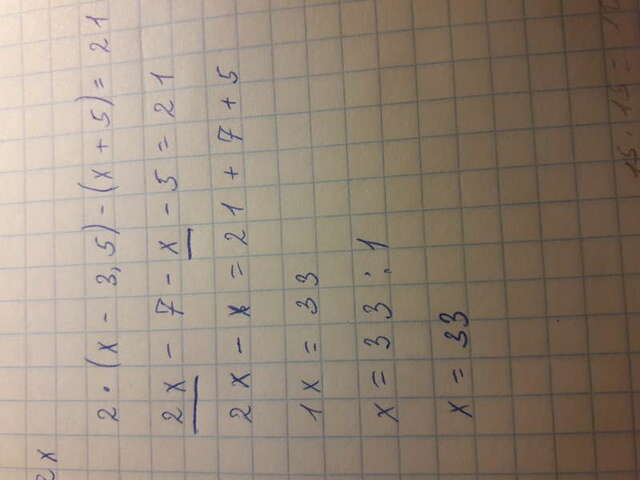 2x
2 · (x - 3,5) - (x + 5) = 21
2x - 7 - x - 5 = 21
2x - x = 21 + 7 + 5
1x = 33
x = 33 : 1
x = 33